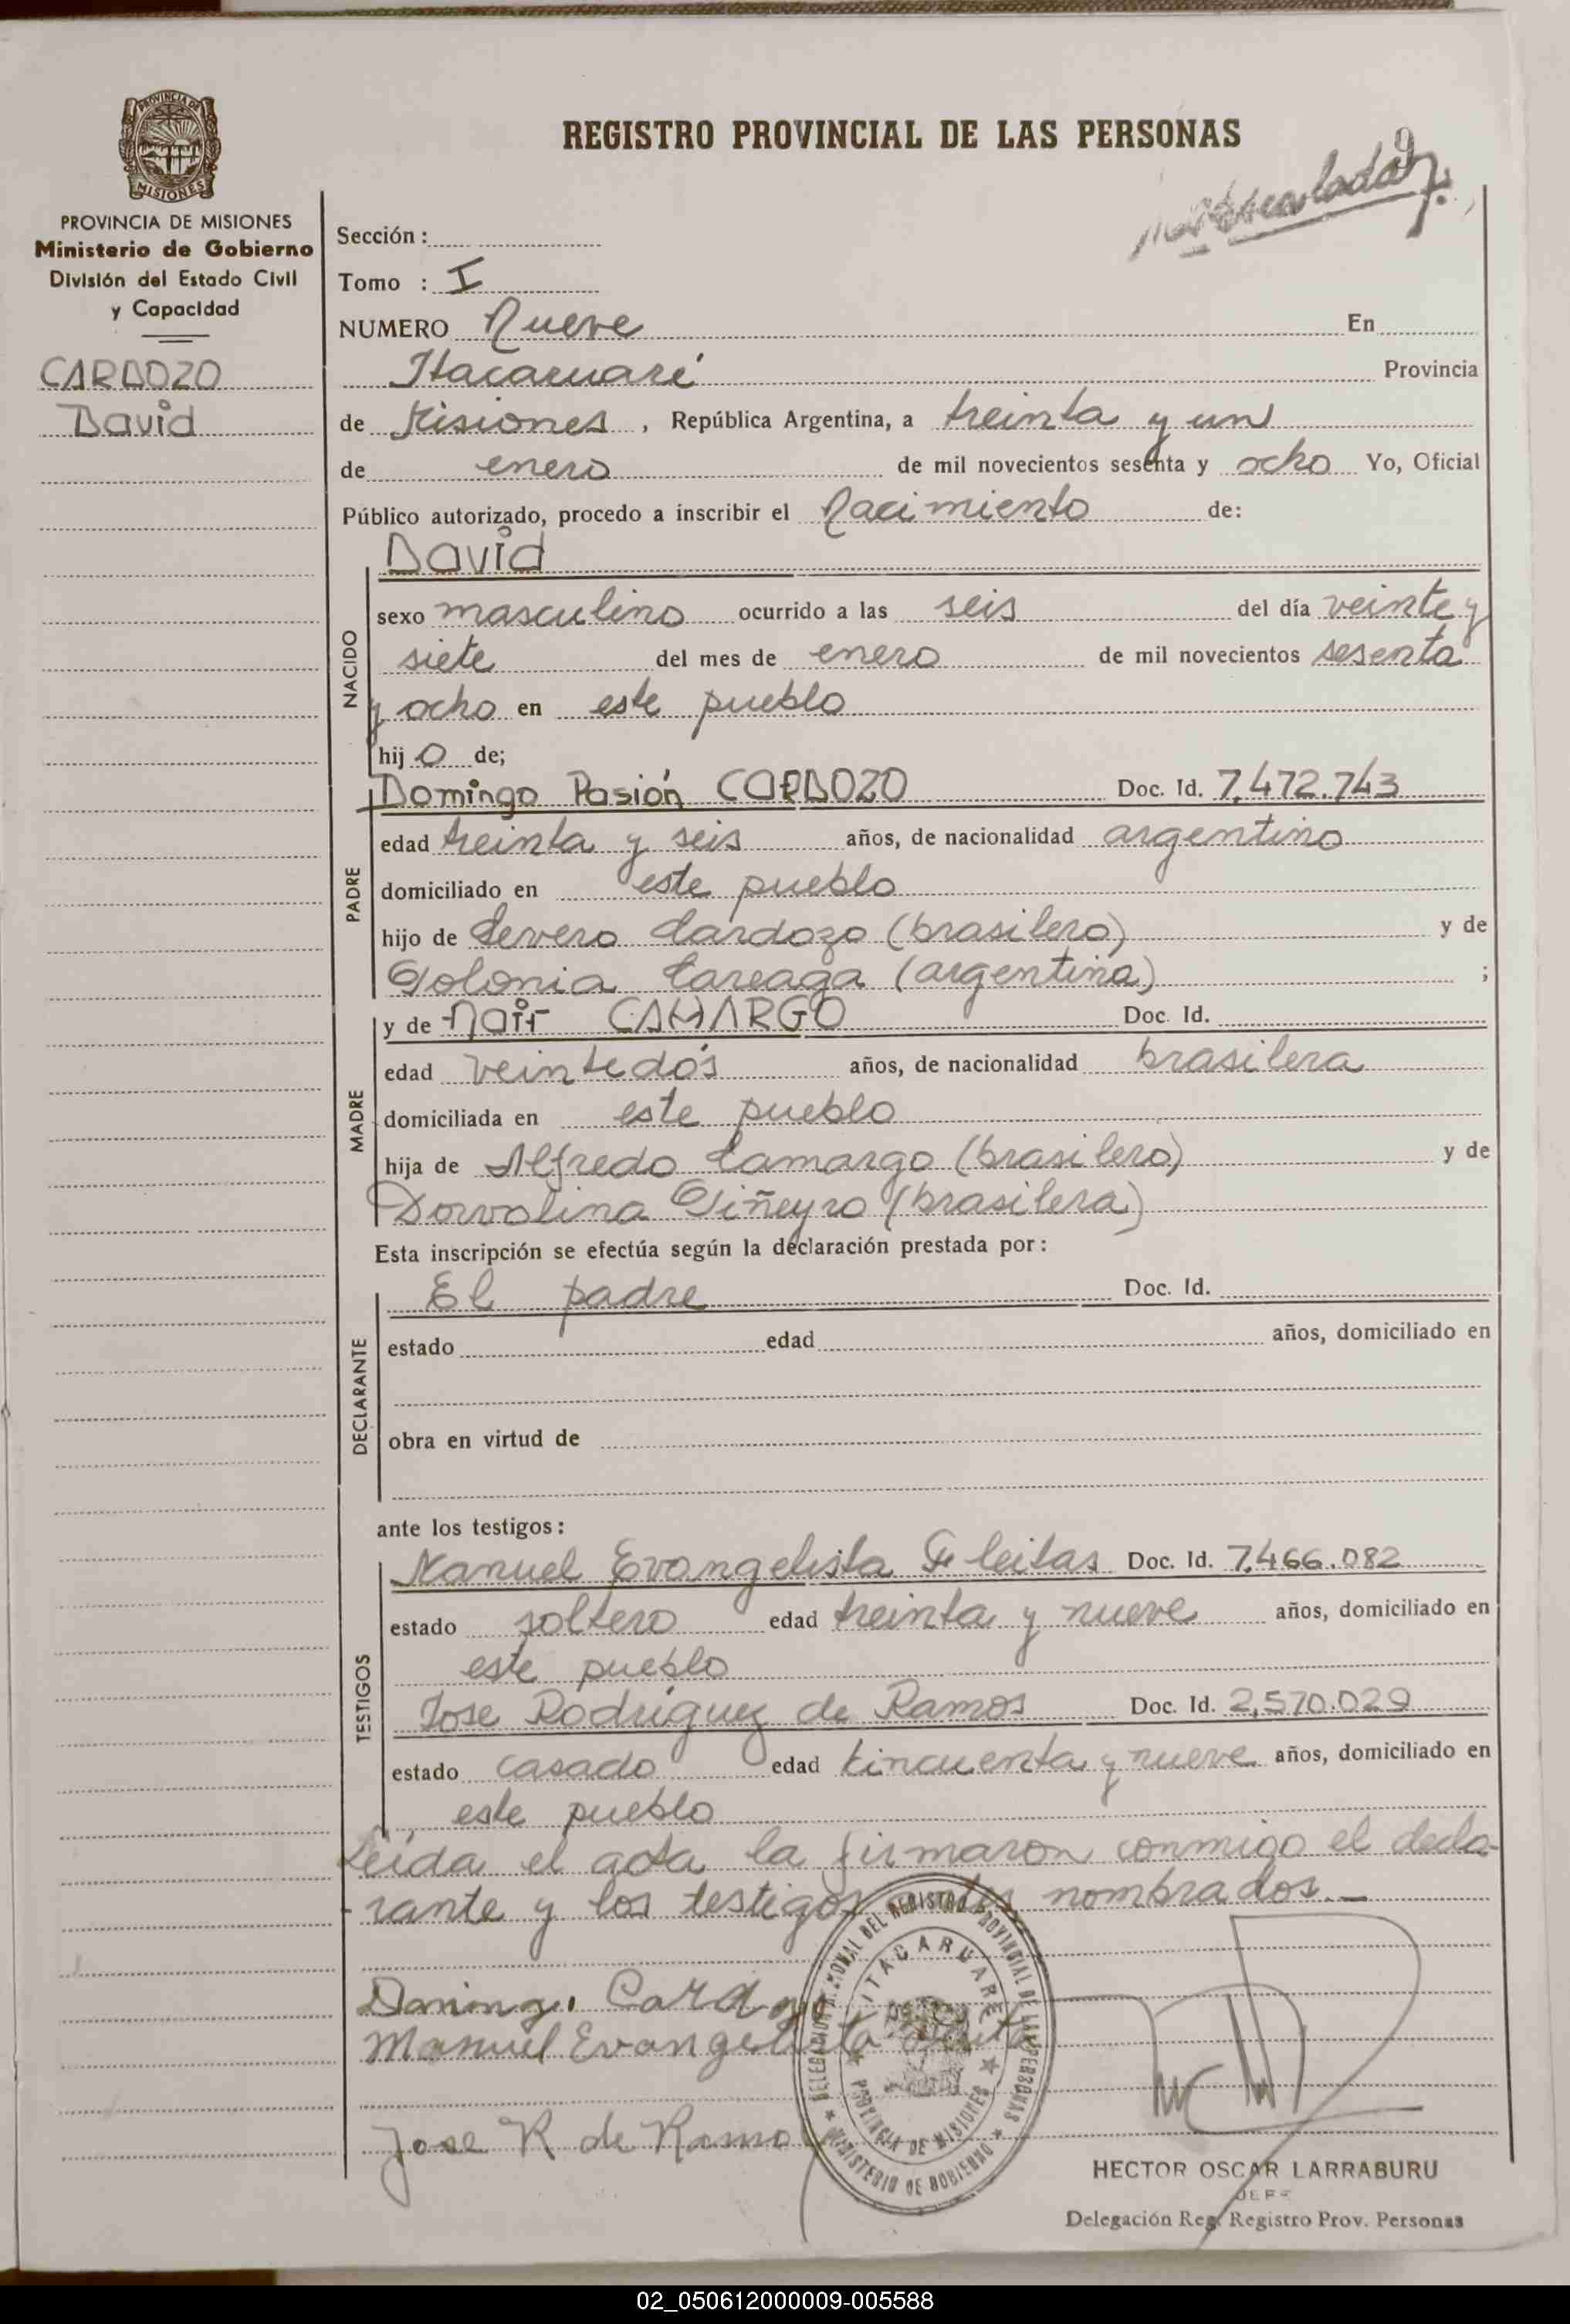 REGISTRO PROVINCIAL DE LAS PERSONAS
9
PROVINCIA DE
MISIONES
PROVINCIA DE MISIONES
Ministerio de Gobierno
División del Estado Civil
y Capacidad
CARDOZO
David
Sección :
Tomo : I
NUMERO Nueve En
Itacaruaré Provincia
de Misiones , República Argentina, a treinta y un
de enero de mil novecientos sesenta y ocho Yo, Oficial
Público autorizado, procedo a inscribir el Nacimiento de:
NACIDO
David
sexo masculino ocurrido a las seis del día veinte y
siete del mes de enero de mil novecientos sesenta
y ocho en este pueblo
hij o de;
PADRE
Domingo Pasión CARDOZO Doc. Id. 7.472.743
edad treinta y seis años, de nacionalidad argentino
domiciliado en este pueblo
hijo de Severo Cardozo (brasilero) y de
Polonia Careaga (argentina) ;
MADRE
y de Nair CAMARGO Doc. Id.
edad veintedós años, de nacionalidad brasilera
domiciliada en este pueblo
hija de Alfredo Camargo (brasilero) y de
Dorvolina Piñeyro (brasilera)
Esta inscripción se efectúa según la declaración prestada por:
DECLARANTE
El padre Doc. Id.
estado edad años, domiciliado en
obra en virtud de
ante los testigos:
TESTIGOS
Manuel Evangelista Fleitas Doc. Id. 7.466.082
estado soltero edad treinta y nueve años, domiciliado en
este pueblo
Jose Rodriguez de Ramos Doc. Id. 2,570.029
estado casado edad cincuenta y nueve años, domiciliado en
este pueblo
Leída el acta la firmaron conmigo el decla-
rante y los testigos nombrados.
Domingo Cardozo
Manuel Evangelista
Jose R de Ramo
DELEGACION REGIONAL DEL REGISTRO PROVINCIAL DE LAS PERSONAS
MINISTERIO DE GOBIERNO
ITACARUARE
PROVINCIA DE MISIONES
HECTOR OSCAR LARRABURU
JEFE
Delegación Reg. Registro Prov. Personas
02_050612000009-005588